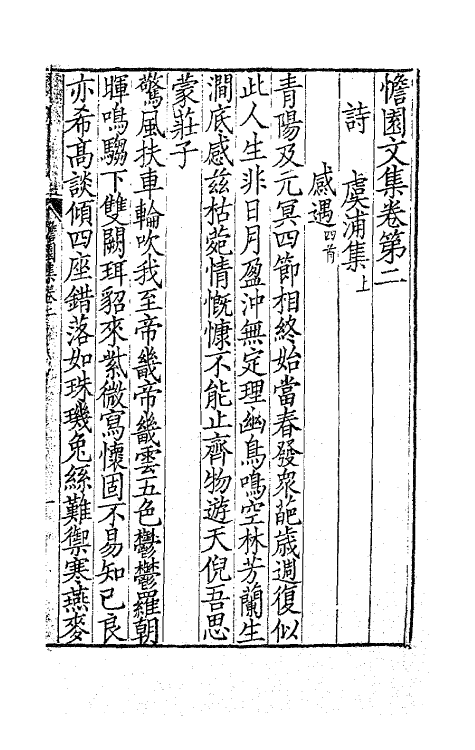 憺園文集卷第二
詩　虞浦集上
感遇四首
青陽及元冥四節相終始當春發衆葩歲週復似
此人生非日月盈沖無定理幽鳥鳴空林芳蘭生
澗底感兹枯菀情慨慷不能止齊物遊天倪吾思
蒙莊子
驚風扶車輪吹我至帝畿帝畿雲五色鬱鬱羅朝
暉鳴騶下雙闕珥貂來紫微寫懷固不易知己良
亦希高談傾四座錯落如珠璣兔絲難禦寒燕麥
憺園集卷二